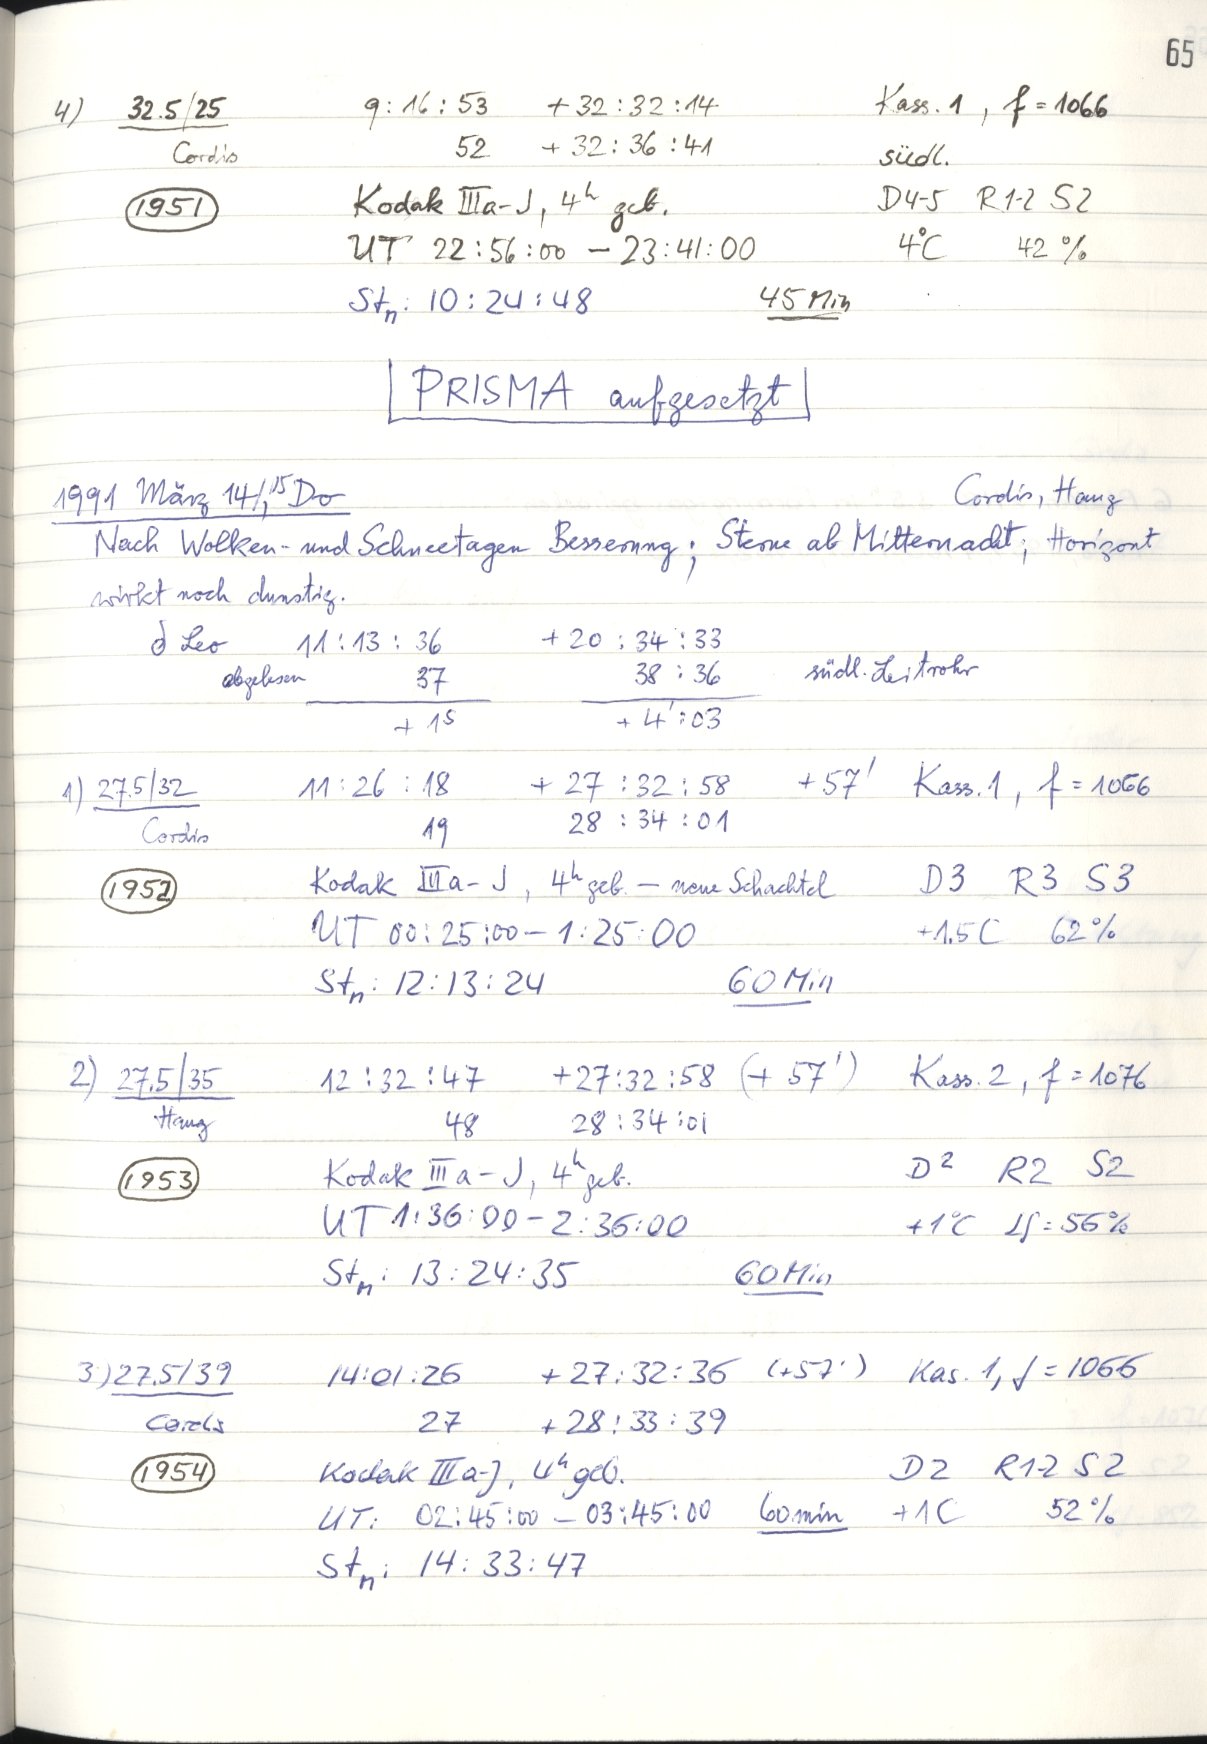 65
4) 32.5/25 9:16:53 +32:32:14 Kass. 1, f=1066
Cordis 52 +32:36:41 südl.
1951 Kodak IIIa-J, 4h geb. D4-5 R1-2 S2
UT 22:56:00 – 23:41:00 4°C 42%
Stn: 10:24:48 45 Min
PRISMA aufgesetzt
1991 März 14/15 Do Cordis, Haug
Nach Wolken- und Schneetagen Besserung; Sterne ab Mitternacht; Horizont
wirkt noch dunstig.
δ Leo 11:13:36 +20:34:33
abgelesen 37 38:36 südl. Leitrohr
+1s +4':03
1) 27.5/32 11:26:18 +27:32:58 +57' Kass. 1, f=1066
Cordis 19 28:34:01
1952 Kodak IIIa-J, 4h geb. – neue Schachtel D3 R3 S3
UT 00:25:00 – 1:25:00 +1.5C 62%
Stn: 12:13:24 60 Min
2) 27.5/35 12:32:47 +27:32:58 (+57') Kass. 2, f=1076
Haug 48 28:34:01
1953 Kodak IIIa-J, 4h geb. D2 R2 S2
UT 1:36:00 – 2:36:00 +1°C Lf=56%
Stn: 13:24:35 60 Min
3) 27.5/39 14:01:26 +27:32:36 (+57') Kas. 1, f=1066
Cordis 27 +28:33:39
1954 Kodak IIIa-J, 4h geb. D2 R1-2 S2
UT: 02:45:00 – 03:45:00 60 min +1C 52%
Stn: 14:33:47